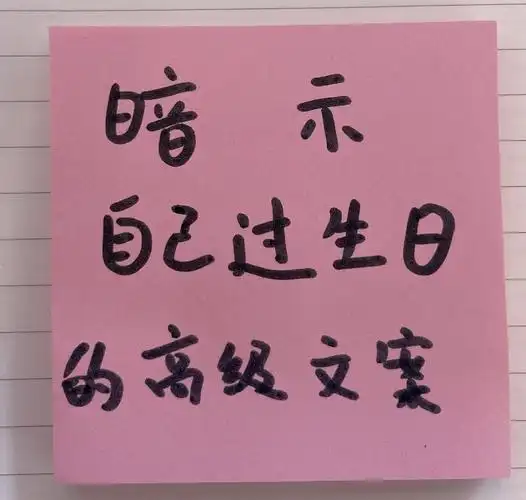 暗示
自己过生日
的高级文案